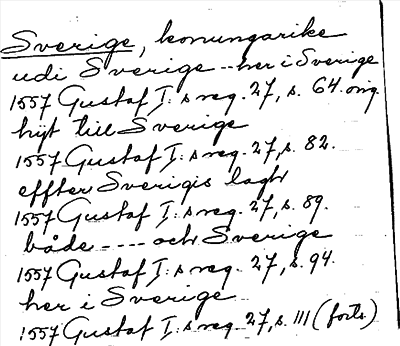 Sverige, konungarike
udi Sverige -- her i Sverige
1557 Gustaf I:s reg. 27, s. 64. orig.
hijt till Sverige
1557 Gustaf I:s reg. 27, s. 82.
effter Sverigis lagh
1557 Gustaf I:s reg. 27, s. 89.
både ---- och Sverige
1557 Gustaf I:s reg. 27, s. 94.
her i Sverige
1557 Gustaf I:s reg. 27, s. 111 (forts.)